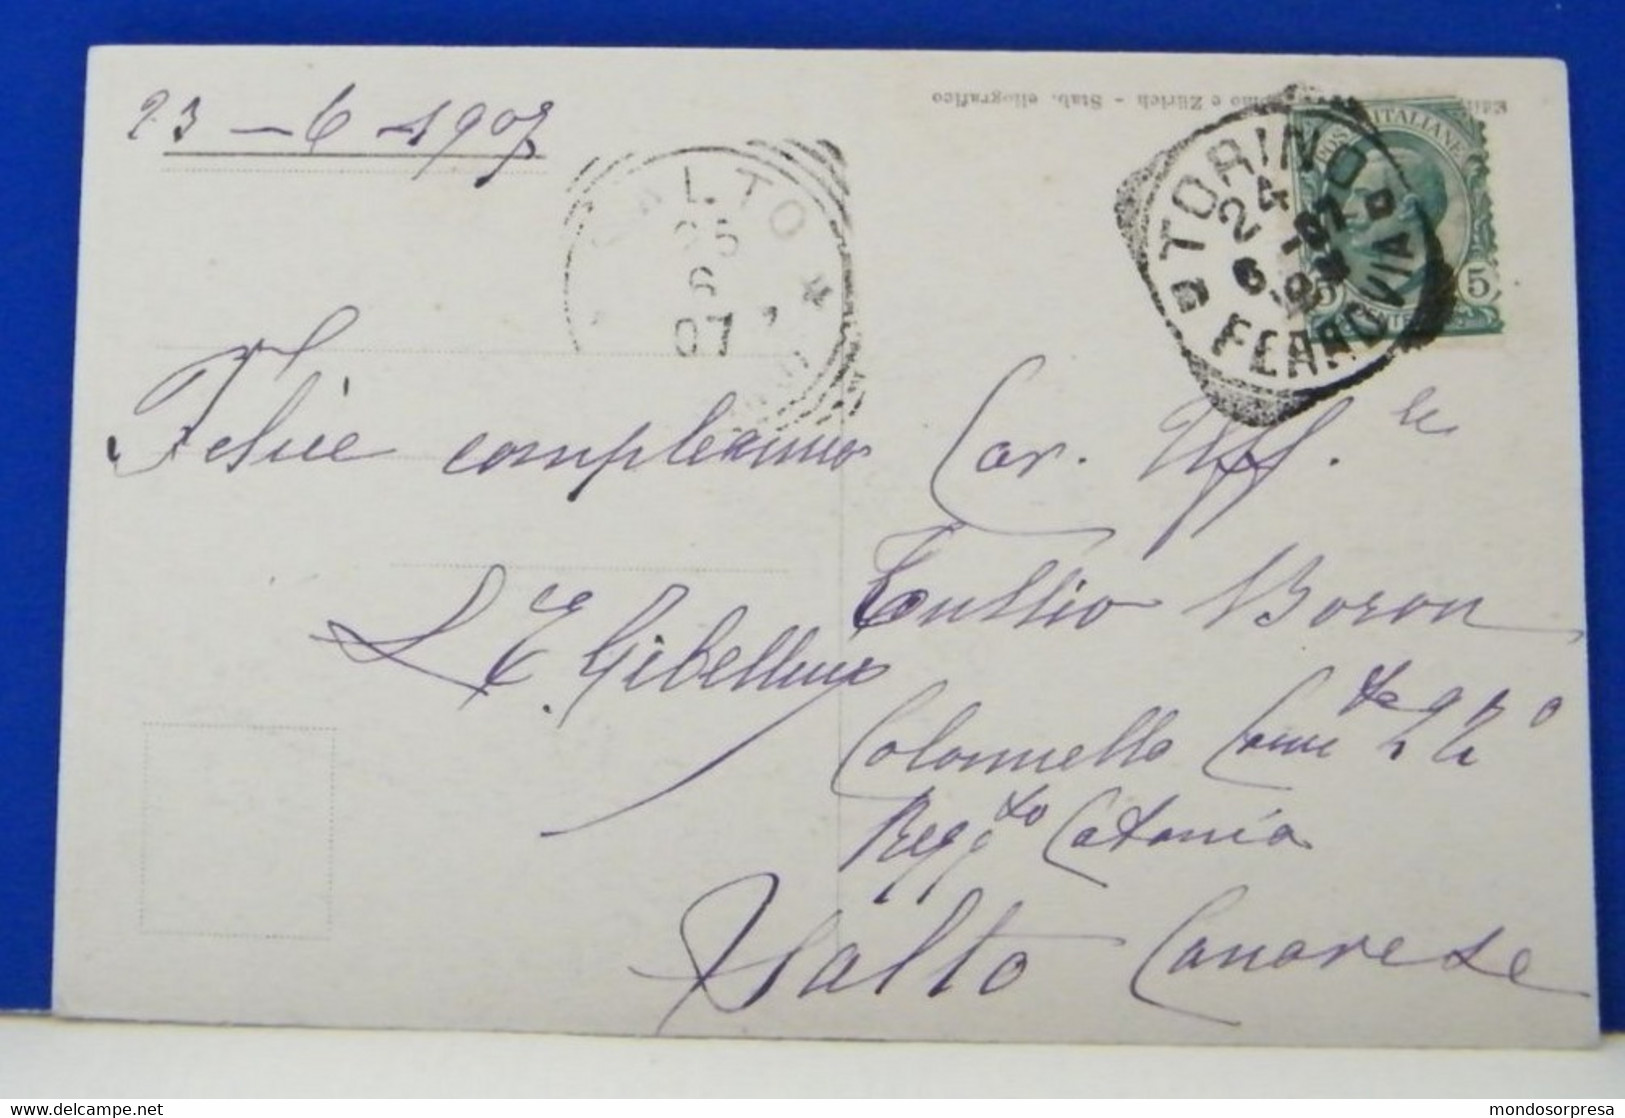 23 - 6 - 1907
SALTO
25
6
07
Stab. eliografico
e Zürich -
POSTE ITALIANE
5
TORINO
24
6
07
FERROVIA
Felice compleanno
E. Gibellini
Cav. Uff.le
Tullio Boron
Colonnello Com.te
Regg.to Catania
Salto Canavese
mondosorpresa